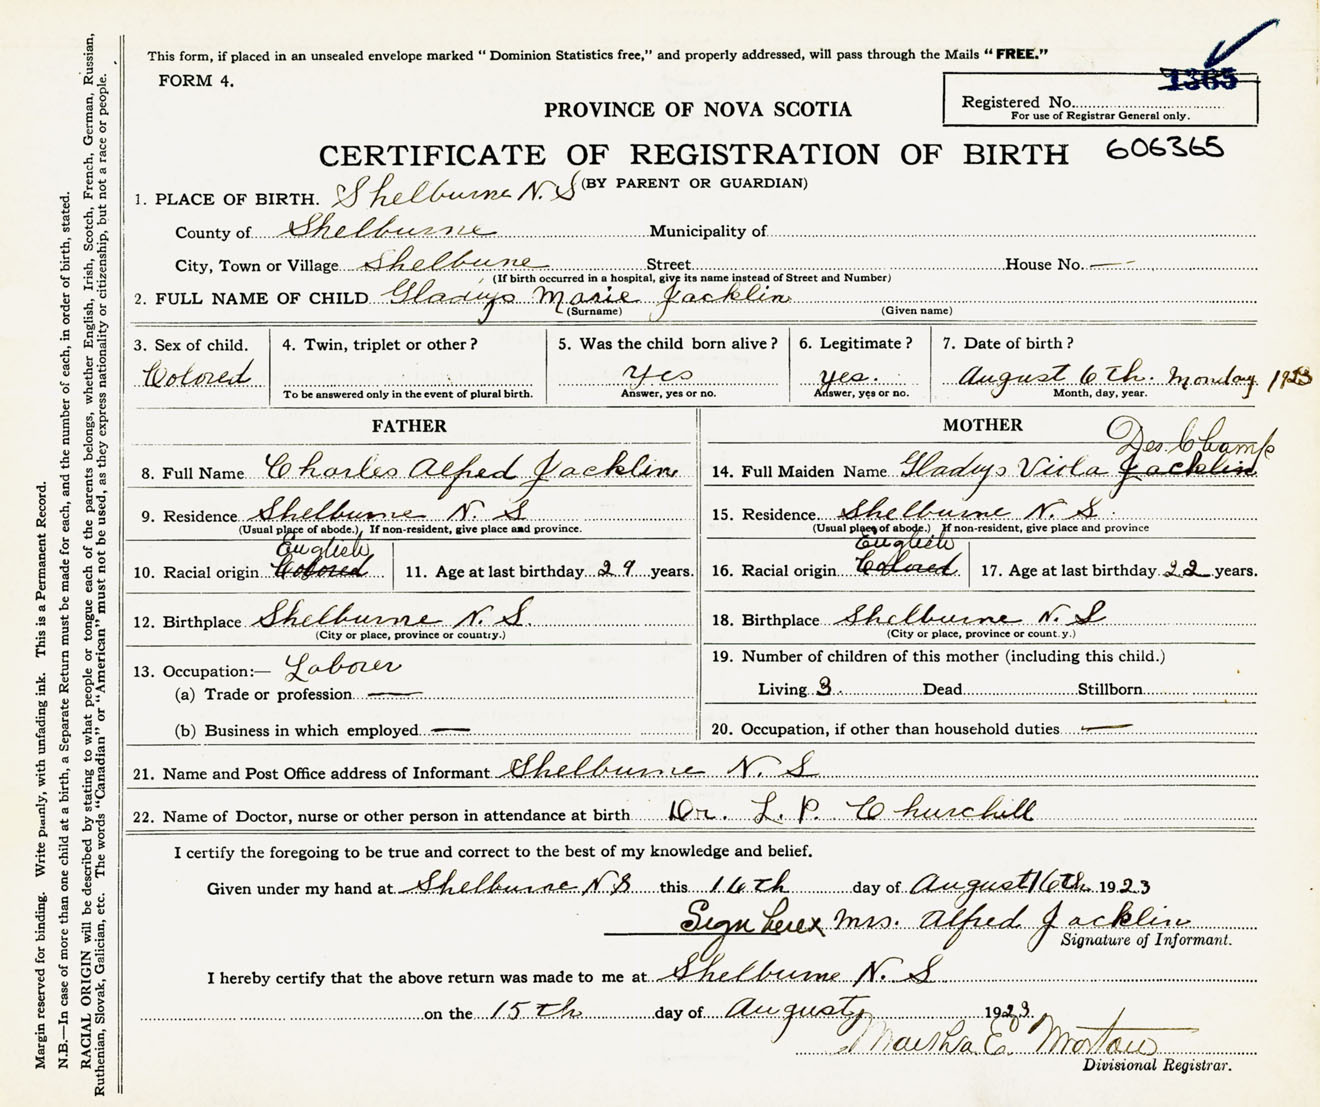 This form, if placed in an unsealed envelope marked "Dominion Statistics free," and properly addressed, will pass through the Mails "FREE."
FORM 4.
1365
Registered No.
For use of Registrar General only.
PROVINCE OF NOVA SCOTIA
CERTIFICATE OF REGISTRATION OF BIRTH 606365
(BY PARENT OR GUARDIAN)
1. PLACE OF BIRTH. Shelburne N. S
County of Shelburne Municipality of
City, Town or Village Shelbune Street House No. —
(If birth occurred in a hospital, give its name instead of Street and Number)
2. FULL NAME OF CHILD Gladys Marie Jacklin
(Surname) (Given name)
3. Sex of child. 4. Twin, triplet or other? 5. Was the child born alive? 6. Legitimate? 7. Date of birth?
Colored yes yes. August 6th. Monday 1923
To be answered only in the event of plural birth. Answer, yes or no. Answer, yes or no. Month, day, year.
FATHER
8. Full Name Charles Alfred Jacklin
9. Residence Shelburne N. S
(Usual place of abode.) If non-resident, give place and province.
English
10. Racial origin Colored 11. Age at last birthday 29 years.
12. Birthplace Shelburne N. S.
(City or place, province or country.)
13. Occupation:— Laborer
(a) Trade or profession —
(b) Business in which employed —
MOTHER
Des Champ
14. Full Maiden Name Gladys Viola Jacklin
15. Residence Shelburne N. S.
(Usual place of abode.) If non-resident, give place and province
English
16. Racial origin Colored 17. Age at last birthday 22 years.
18. Birthplace Shelburne N. S
(City or place, province or count.y.)
19. Number of children of this mother (including this child.)
Living 3 Dead Stillborn
20. Occupation, if other than household duties —
21. Name and Post Office address of Informant Shelburne N. S
22. Name of Doctor, nurse or other person in attendance at birth Dr. L. P. Churchill
I certify the foregoing to be true and correct to the best of my knowledge and belief.
Given under my hand at Shelburne N. S this 16th day of August 16th 1923
Sign here x Mrs. Alfred Jacklin
Signature of Informant.
I hereby certify that the above return was made to me at Shelburne N. S
on the 15th day of August 1923.
Martha E. Morton
Divisional Registrar.
Margin reserved for binding. Write plainly, with unfading ink. This is a Permanent Record.
N.B.—In case of more than one child at a birth, a Separate Return must be made for each, and the number of each, in order of birth, stated.
RACIAL ORIGIN will be described by stating to what people or tongue each of the parents belongs, whether English, Irish, Scotch, French, German, Russian,
Ruthenian, Slovak, Galician, etc. The words "Canadian" or "American" must not be used, as they express nationality or citizenship, but not a race or people.